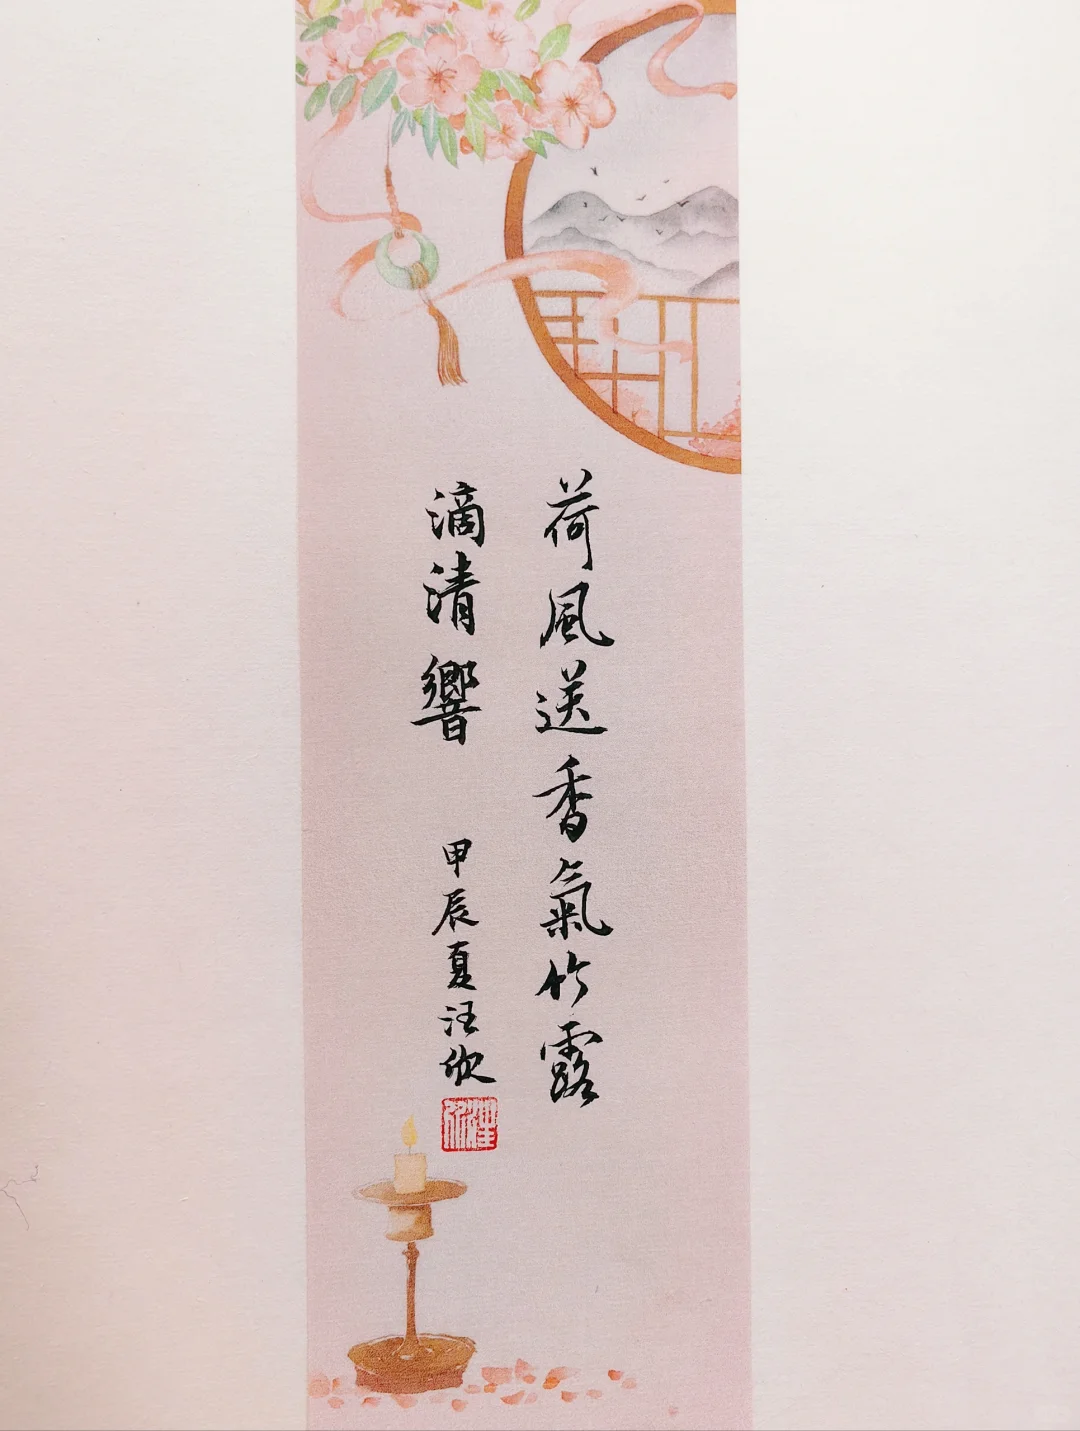 荷風送香氣竹露
滴清響
甲辰夏汪欣